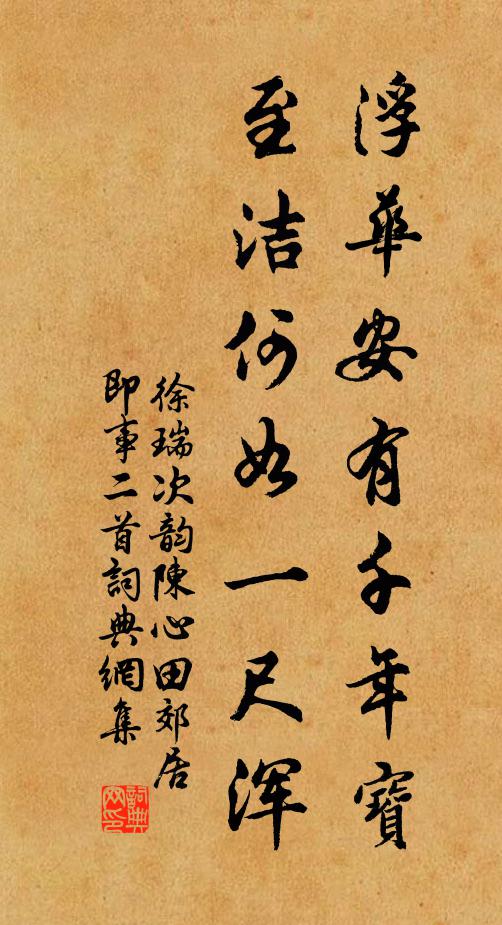 浮華安有千年寶
至洁何如一尺浑
徐瑞次韵陳心田郊居
即事二首詞典網集
詞典网印